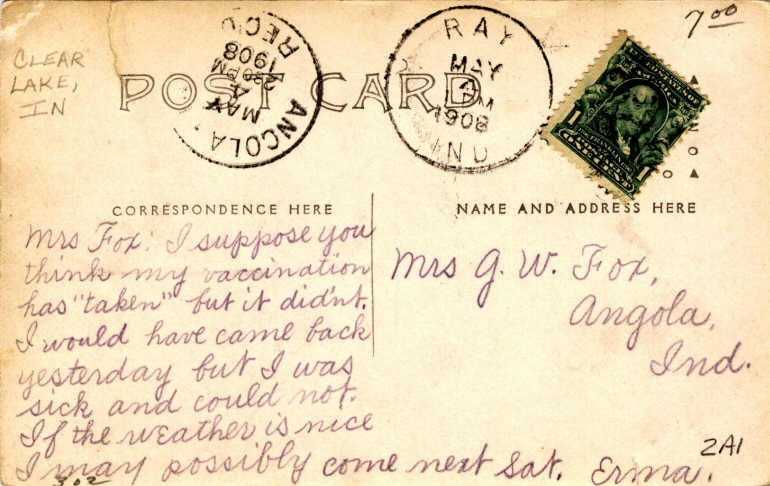 7⁰⁰
CLEAR
LAKE,
IN
POST CARD
ANGOLA
MAY
4
230PM
1908
REC'D
RAY
MAY
AM
1908
IND
1
1
CORRESPONDENCE HERE
NAME AND ADDRESS HERE
Mrs Fox: I suppose you
think my vaccination
has "taken" but it did'nt.
I would have came back
yesterday but I was
sick and could not.
If the weather is nice
I may possibly come next Sat. Erma.
Mrs G. W. Fox,
Angola,
Ind.
2A1